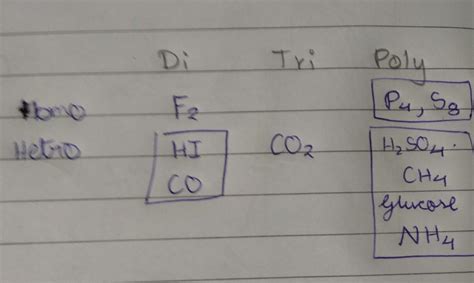 Di Tri Poly
Homo F₂ P₄, S₈
Hetro HI CO₂ H₂SO₄.
CO CH₄
Glucose
NH₄